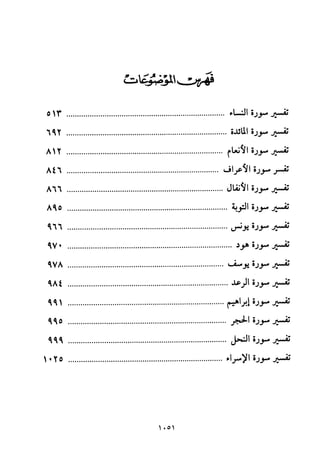 فهرس الموضوعات
تفسير سورة النساء ..... ٥١٣
تفسير سورة المائدة ..... ٦٩٢
تفسير سورة الأنعام ..... ٨١٢
تفسر سورة الأعراف ..... ٨٤٦
تفسير سورة الأنفال ..... ٨٦٦
تفسير سورة التوبة ..... ٨٩٥
تفسير سورة يونس ..... ٩٦٦
تفسير سورة هود ..... ٩٧٠
تفسير سورة يوسف ..... ٩٧٨
تفسير سورة الرعد ..... ٩٨٤
تفسير سورة إبراهيم ..... ٩٩١
تفسير سورة الحجر ..... ٩٩٥
تفسير سورة النحل ..... ٩٩٩
تفسير سورة الإسراء ..... ١٠٢٥
١٠٥١